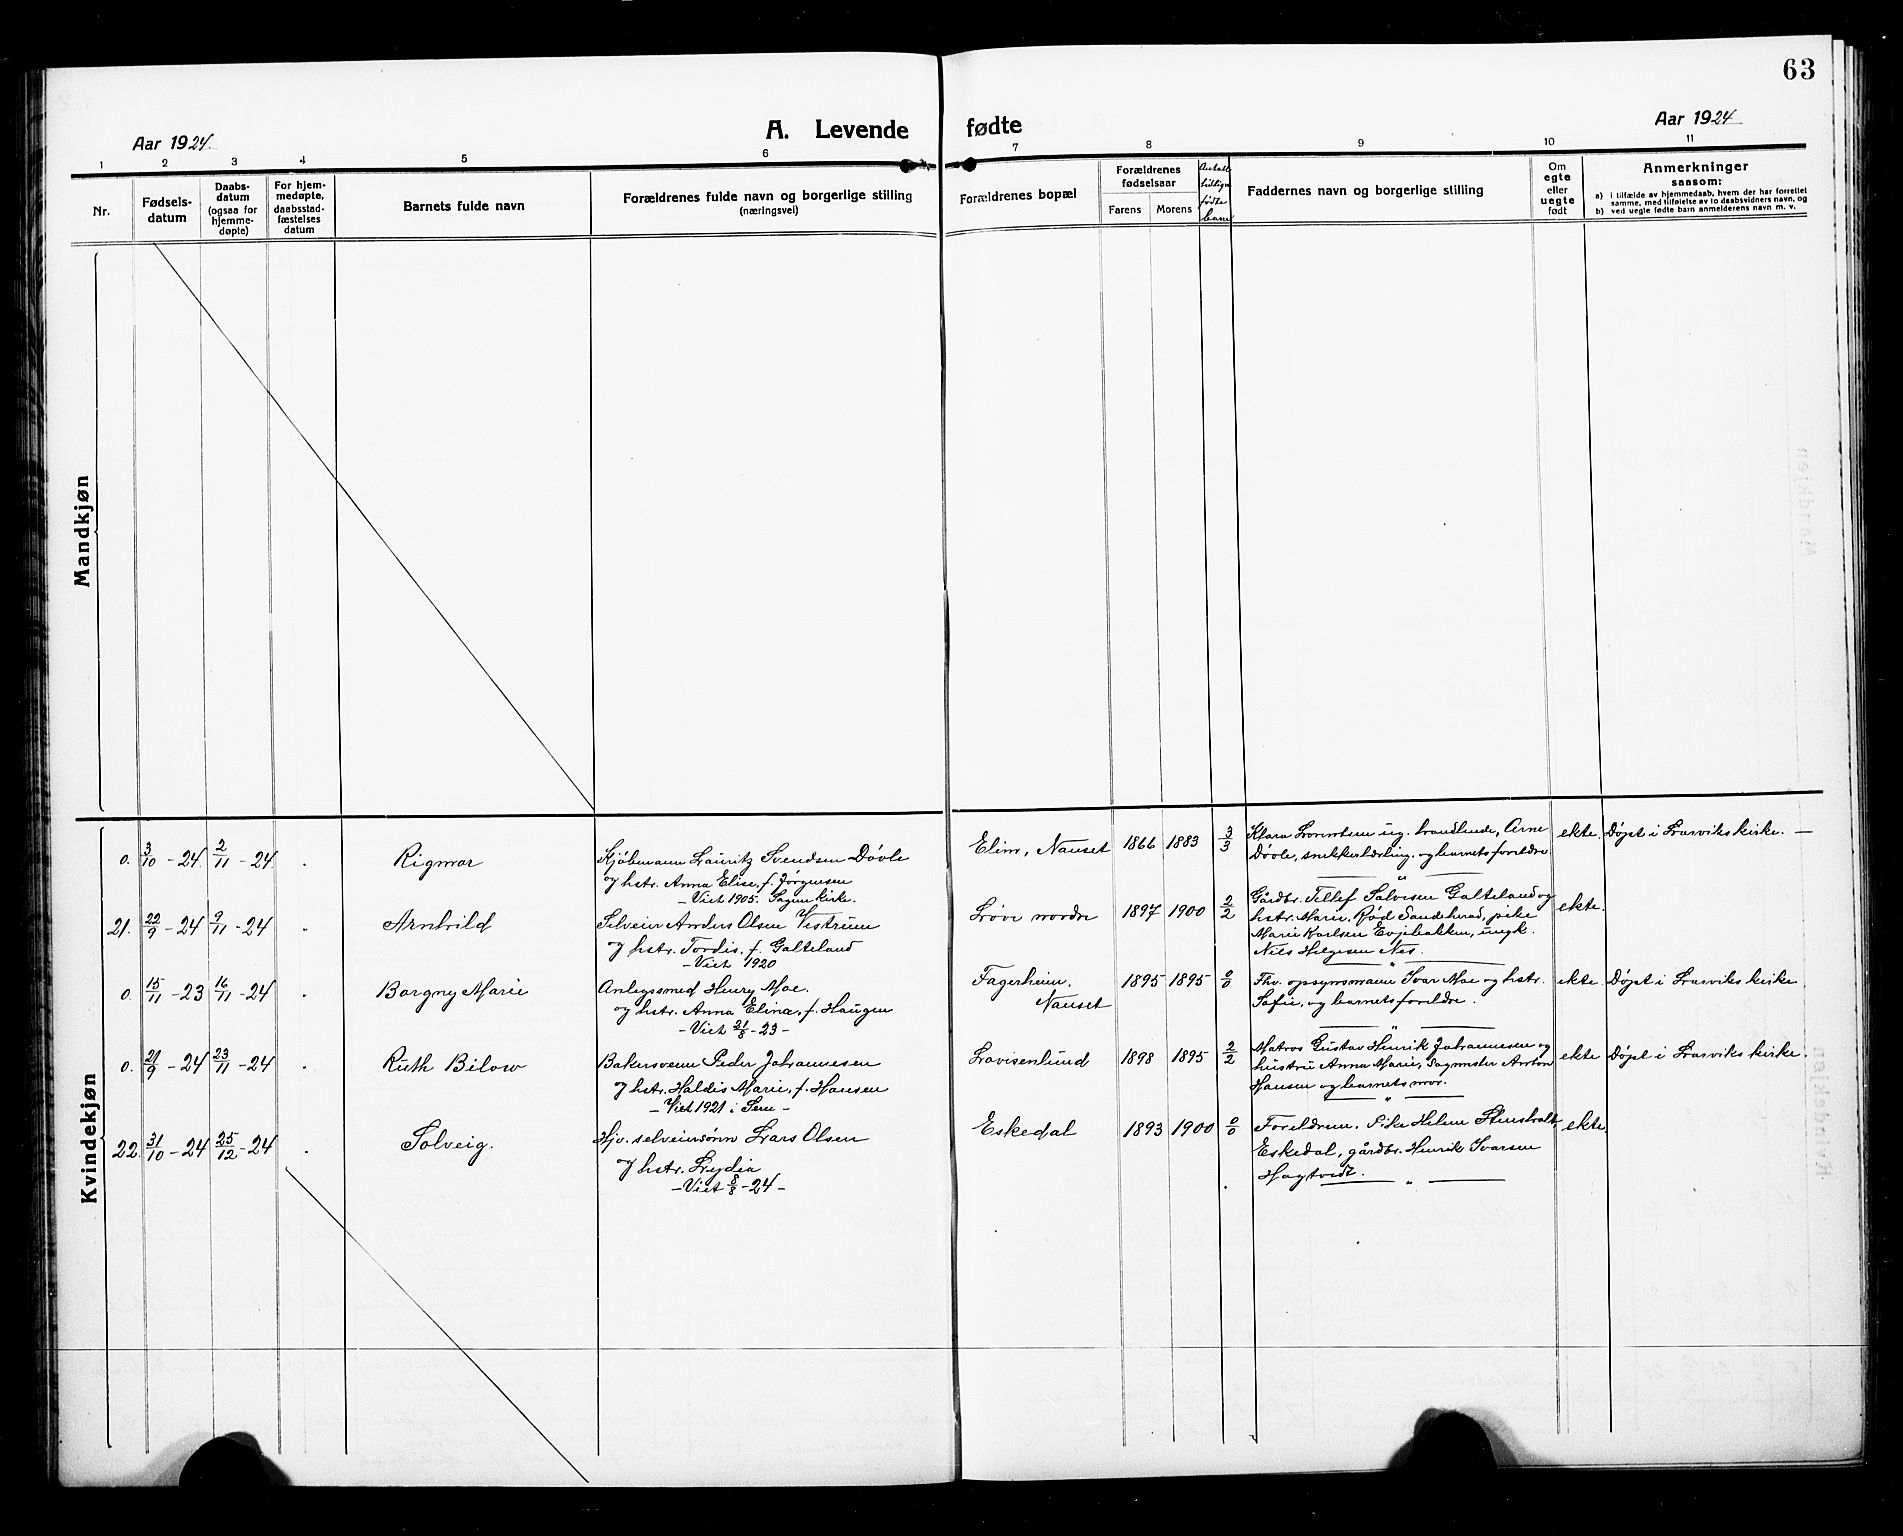 63
Aar 1924.
A. Levende fødte
Aar 1924
1 2 3 4 5 6 7 8 9 10 11
Nr.
Fødsels-
datum
Daabs-
datum
(ogsaa for
hjemme-
døpte)
For hjem-
medøpte,
daabsstad-
fæstelses
datum
Barnets fulde navn
Forældrenes fulde navn og borgerlige stilling
(næringsvei)
Forældrenes bopæl
Forældrenes
fødselsaar
Farens Morens
Antall
tidligere
fødte
barn
Faddernes navn og borgerlige stilling
Om
egte
eller
uegte
født
Anmerkninger
saasom:
a) i tilfælde av hjemmedaab, hvem der har forrettet
samme, med tilføielse av to daabsvidners navn, og
b) ved uegte fødte barn anmelderens navn m. v.
Mandkjøn
Kvindekjøn
0. 3/10-24. 2/11-24. Rigmor
Kjøbmann Lauritz Svendsen Døvle
og hstr. Anna Elise, f. Jørgensen
- Viet 1905.
Elim, Nanset 1866 1883 3/3
Døvle, snekkerlærling, og barnets foreldre
ekte. Døpt i Larviks kirke. —
21. 22/9-24 9/11-24 Arnhild
Selveier Anders Olsen Vestrum
og hstr. Tordis, f. Galteland
- Viet 1920
Løve nordre 1897 1900 2/2
Gårdbr. Tellef Salvesen Galteland og
hstr. Marie, Rød Sandeherad, pike
Marie Karlsen Evjebakken, ungk.
Nils Helgesen Nes.
ekte.
0. 15/11-23 16/11-24 Borgny Marie
Anlegssmed Henry Moe.
og hstr. Anna Elina, f. Haugen
- Viet 21/8-23 -
Fagerheim,
Nanset
1895 1895 0/0
Fhv. opsynsmann Ivar Moe og hstr.
Sofie, og barnets foreldre.
ekte Døpt i Larviks kirke
0. 21/9-24 23/11-24 Ruth Bilow
Bakersvenn Peder Johannesen
og hstr. Haldis Marie, f. Hansen
- Viet 1921 i Sem -
Lovisenlund 1898 1895 2/2
Matros Gustav Henrik Johannesen og
hustru Anna Marie, Sagmster Anton
Hansen og barnets mor.
ekte Døpt i Larviks kirke.
22. 31/10-24 25/12-24 Solveig.
Hjv. selveiersønn Lars Olsen
og hstr. Lydia
- Viet 8/8-24 -
Eskedal 1893 1900 0/0
Foreldrene. Pike Helene Stensholt
Eskedal, gårdbr. Henrik Ivarsen
Hagtvedt.
ekte.